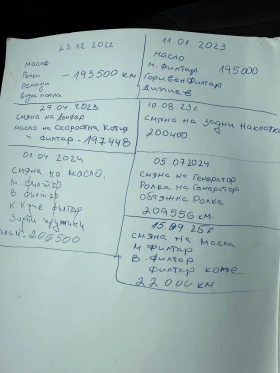 23.12.2022
масло
Ролки
ремъци
водна помпа
- 193500 км
11.01 2023
масло
м. филтар 195000
Горивен Филтар
29.04.2023
смяна на
масло на скоростна кутия
и филтар - 197448
10.08.23г.
смяна на задни накладки
200400
01.04 2024
смяна на масло.
м. филтър
в. филтър
к. купе филтър
Задни пружини
206500
05.07 2024
смяна на Генератор
Ролка на Генератор
обтяжна Ролка
209556 км.
15.09 25г
смяна на масла
м филтар
в. филтар
филтар купе
22 000 км